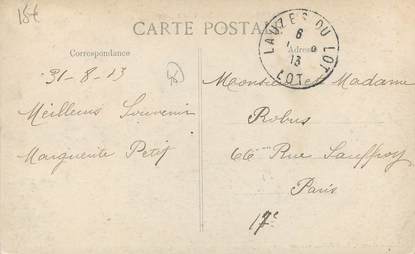 15€
CARTE POSTALE
Correspondance
Adresse
LAUZÈS DU LOT
6
13
LOT
31-8-13
Meilleurs Souvenir
Marguerite Petit
Monsieur et Madame
Robus
66 Rue Lauffroy
Paris
17e